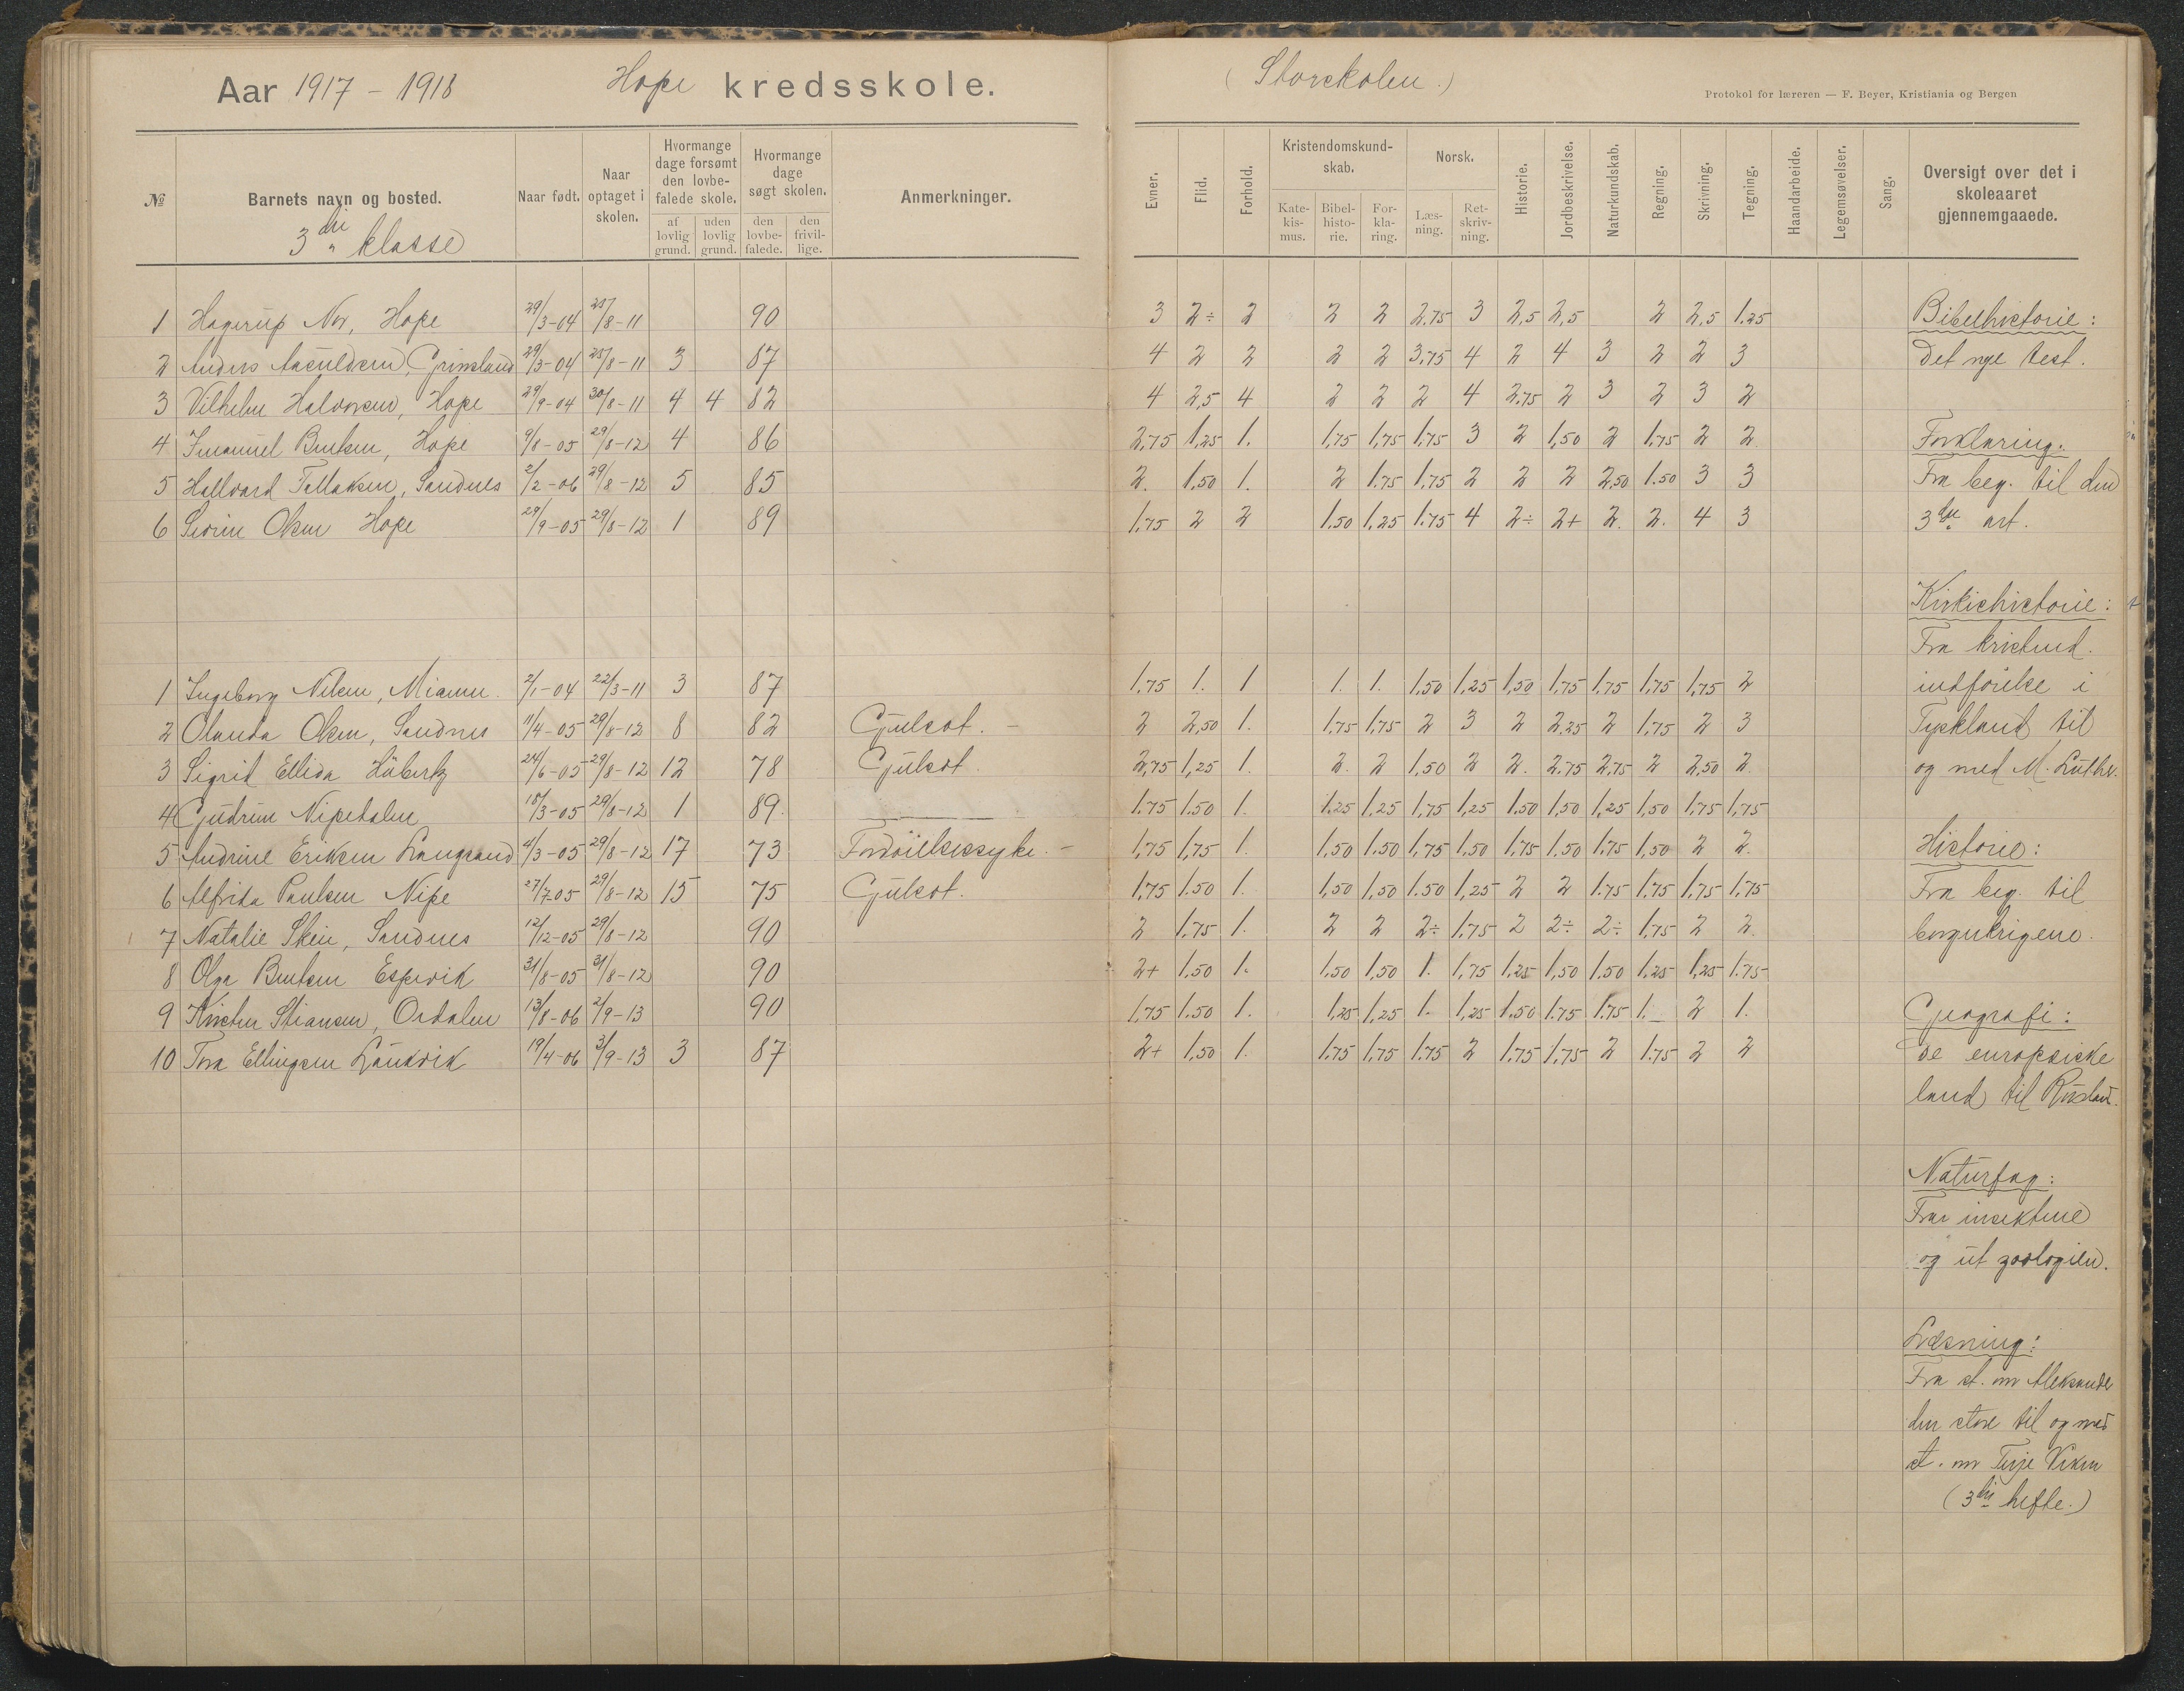 Aar 1917 - 1918 Hope kredsskole. (Storskolen.)
Protokol for læreren — F. Beyer, Kristiania og Bergen
№ Barnets navn og bosted. Naar født. Naar optaget i skolen. Hvormange dage forsømt den lovbefalede skole. af lovlig grund. uden lovlig grund. Hvormange dage søgt skolen. den lovbefalede. den frivillige. Anmerkninger.
3die klasse
Evner. Flid. Forhold. Kristendomskundskab. Katekismus. Bibelhistorie. Forklaring. Norsk. Læsning. Retskrivning. Historie. Jordbeskrivelse. Naturkundskab. Regning. Skrivning. Tegning. Haandarbeide. Legemsøvelser. Sang. Oversigt over det i skoleaaret gjennemgaaede.
1 Hagerup Nor, Hope 29/3-04 25/8-11 90 3 2÷ 2 2 2 2.75 3 2,5 2,5 2 2,5 1.25
2 Anders Grimsland 29/3-04 25/8-11 3 87 4 2 2 2 2 3.75 4 2 4 3 2 2 3
3 Vilhelm Halvorsen, Hope 29/9-04 30/8-11 4 4 82 4 2,5 4 2 2 2 4 2.75 2 3 2 3 2
4 Imanuel Bentsen, Hope 9/8-05 29/8-12 4 86 2,75 1,25 1. 1,75 1,75 1,75 3 2 1,50 2 1,75 2 2
5 Hallvard Tallaksen, Sandnes 2/2-06 29/8-12 5 85 2. 1,50 1. 2 1.75 1,75 2 2 2 2,50 1.50 3 3
6 Severin Olsen Hope 29/9-05 29/8-12 1 89 1,75 2 2 1.50 1,25 1.75 4 2÷ 2+ 2. 2. 4 3
1 Ingeborg Nilsen, 2/1-04 22/3-11 3 87 1,75 1. 1 1. 1. 1,50 1,25 1,50 1,75 1,75 1,75 1,75 2
2 Olanda Olsen, Sandnes 11/4-05 29/8-12 8 82 Gulsot. - 2 2,50 1. 1.75 1,75 2 3 2 2.25 2 1,75 2 3
3 Sigrid Ellida Hüberts 24/6-05 29/8-12 12 78 Gulsot. 2,75 1,25 1. 2. 2 1,50 2 2. 2.75 2,75 2 2,50 2.
4 Gudrun Nipedalen 15/3-05 29/8-12 1 89. 1.75 1.50 1. 1.25 1,25 1,75 1,25 1.50 1,50 1,25 1,50 1,75 1,75
5 Andrine Eriksen Langsand 4/3-05 29/8-12 17 73 Fordøielsessyke. - 1,75 1,75 1. 1,50 1.50 1,75 1.50 1,75 1.50 1.75 1,50 2 2.
6 Alfrida Paulsen Nipe 27/7-05 29/8-12 15 75 Gulsot. 1,75 1.50 1. 1,50 1,50 1.50 1,25 2 2 1.75 1.75 1,75 1,75
7 Natalie Skeie, Sandnes 12/12-05 29/8-12 90 2 1.75 1. 2 2 2÷ 1.75 2 2÷ 2÷ 1.75 2 2.
8 Olga Bentsen Espevik 31/8-05 31/8-12 90 2+ 1.50 1. 1,50 1,50 1. 1,75 1.25 1,50 1.50 1.25 1,25 1.75
9 Kirsten Stiansen, Ordalen 13/8-06 2/9-13 90 1,75 1.50 1. 1,25 1,25 1. 1,25 1.50 1.75 1.75 1. 2 1.
10 Tora Ellingsen Laukvik 19/4-06 3/9-13 3 87 2+ 1,50 1. 1.75 1,75 1.75 2 1.75 1,75 2 1.75 2 2
Bibelhistorie:
Det nye test.
Forklaring:
Fra beg. til den
3die art.
Kirkehistorie:
Fra kristend.
indförelse i
Tyskland til
og med M. Luther.
Historie:
Fra beg. til
borgerkrigene.
Geografi:
De europæiske
land til Rusland.
Naturfag:
Fra insektene
og ut zoologien.
Læsning:
Fra st. om Aleksander
den store til og med
st. om Terje Viken
(3die hefte.)